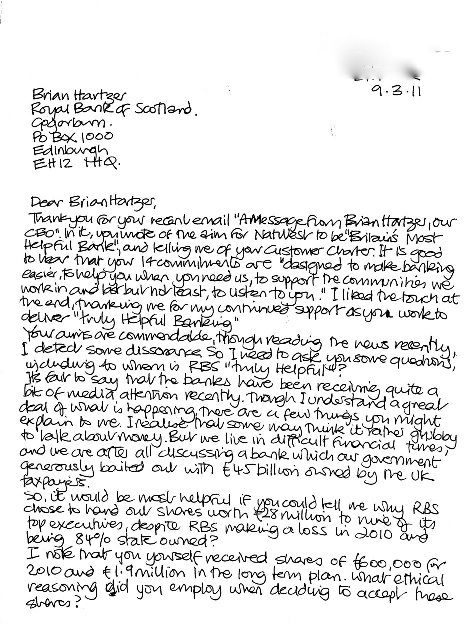 9.3.11
Brian Hartzer
Royal Bank of Scotland.
Gogarburn.
PO BOX 1000
Edinburgh
EH12 1HQ.
Dear Brian Hartzer,
Thank you for your recent email "A Message from Brian Hartzer, our
CEO". In it, you wrote of the aim for NatWest to be "Britain's Most
Helpful Bank", and telling me of your Customer Charter. It is good
to hear that your 14 commitments are "designed to make banking
easier, to help you when you need us, to support the communities we
work in and last but not least, to listen to you." I liked the touch at
the end, thanking me for my continued support as you work to
deliver "Truly Helpful Banking"
Your aims are commendable, though reading the news recently,
I detect some dissonance. So I need to ask you some questions,
including to whom is RBS "Truly Helpful"?
It's fair to say that the banks have been receiving quite a
bit of media attention recently. Though I understand a great
deal of what is happening, there are a few things you might
explain to me. I realise that some may think it rather grubby
to talk about money. But we live in difficult financial times;
and we are after all discussing a bank which our government
generously bailed out with £45 billion owned by the UK
taxpayers.
So, it would be most helpful if you could tell me why RBS
chose to hand out shares worth £28 million to nine of its
top executives, despite RBS making a loss in 2010 and
being 84% state owned?
I note that you yourself received shares of £600,000 for
2010 and £1.9 million in the long term plan. What ethical
reasoning did you employ when deciding to accept these
shares?